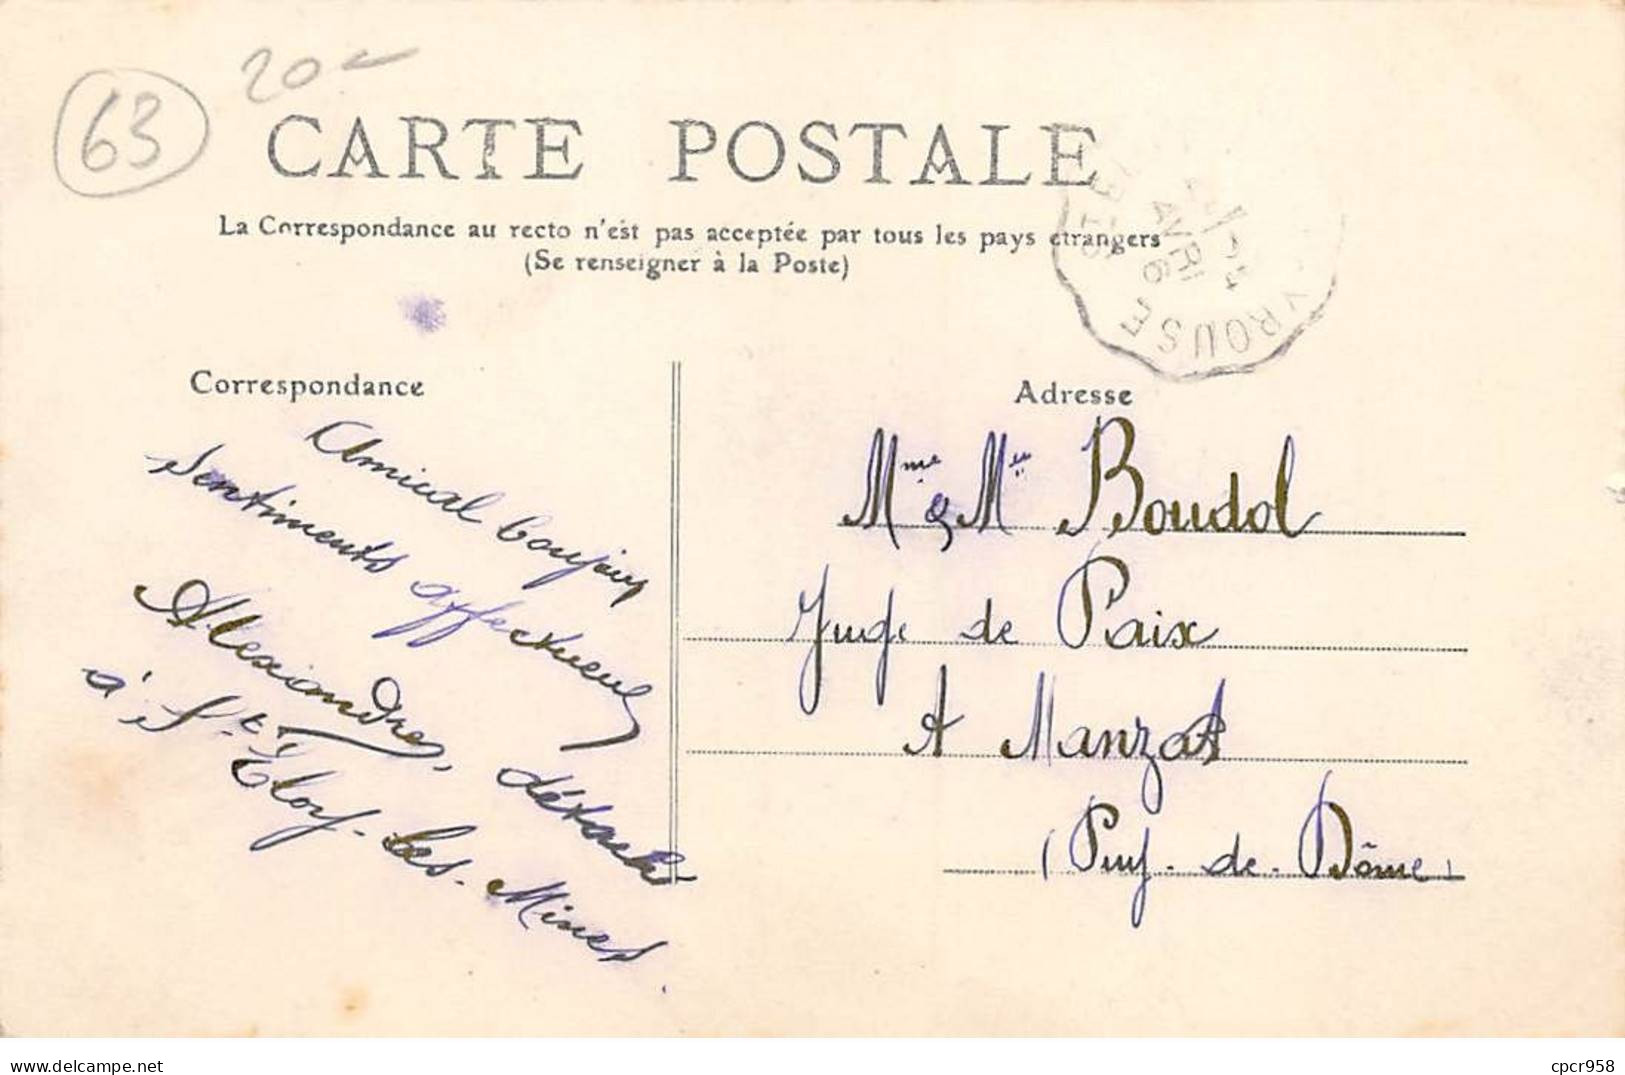 63
20
CARTE POSTALE
La Correspondance au recto n'est pas acceptée par tous les pays étrangers
(Se renseigner à la Poste)
AVRI
VROUSE
Correspondance
Amical bonjour
Sentiments affectueux
Alexandre, détaché
à St Éloy-les-Mines.
Adresse
Mme & Mlle Boudol
Juge de Paix
A Manzat
(Puy-de-Dôme)
www.delcampe.net
cpcr958